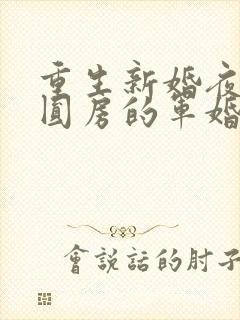 重生新婚夜
圓房的軍婚
會說話的肘子